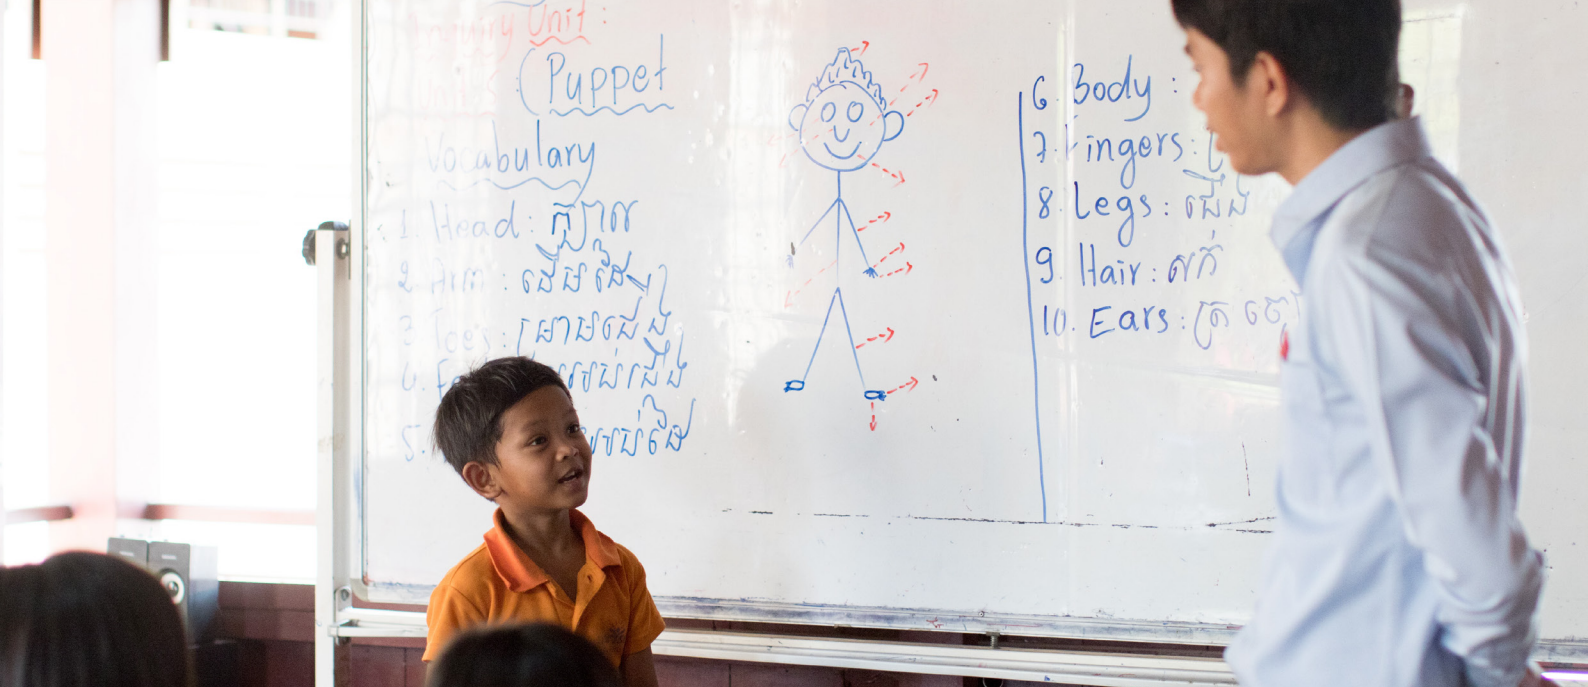 Inquiry Unit:
(Puppet
Vocabulary
1. Head: ក្បាល
2. Arm: ដើមដៃ
3. Toes: ម្រាមជើង
4.
5.
6. Body:
7. Fingers:
8. Legs: ជើង
9. Hair: សក់
10. Ears: ត្រចៀ